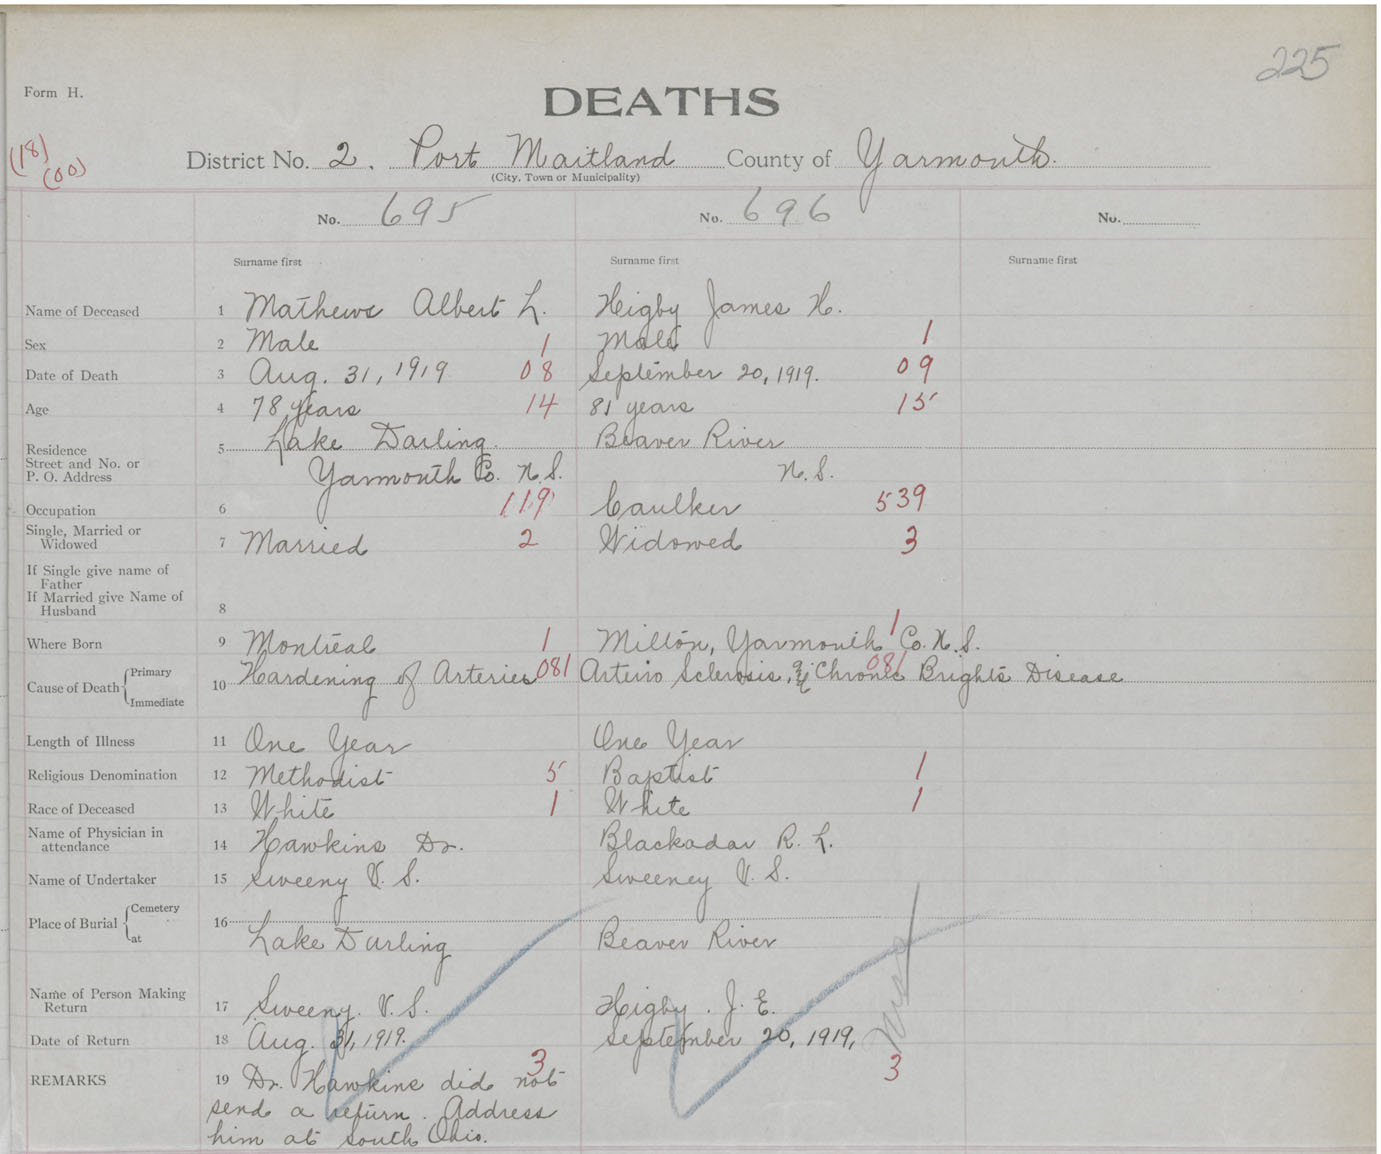 225
Form H.
DEATHS
(18)
(00)
District No. 2. Port Maitland County of Yarmouth.
(City, Town or Municipality)
No. 695 No. 696 No.
Surname first Surname first Surname first
Name of Deceased 1 Mathews Albert L. Higby James H.
Sex 2 Male 1 Male 1
Date of Death 3 Aug. 31, 1919 08 September 20, 1919. 09
Age 4 78 years 14 81 years 15
Residence
Street and No. or
P. O. Address
5 Lake Darling Beaver River
Yarmouth Co. N.S. N.S.
Occupation 6 119 Caulker 539
Single, Married or
Widowed
7 Married 2 Widowed 3
If Single give name of
Father
If Married give Name of
Husband
8
Where Born 9 Montreal 1 Milton, Yarmouth Co. N.S. 1
Cause of Death Primary
Immediate
10 Hardening of Arteries 081 Arterio Sclerosis, & Chronic Brights Disease 081
Length of Illness 11 One Year One Year
Religious Denomination 12 Methodist 5 Baptist 1
Race of Deceased 13 White 1 White 1
Name of Physician in
attendance
14 Hawkins Dr. Blackadar R. L.
Name of Undertaker 15 Sweeny V. S. Sweeney V. S.
Place of Burial Cemetery
at
16 Lake Darling Beaver River
Name of Person Making
Return
17 Sweeny. V. S. Higby. J. E.
Date of Return 18 Aug. 31, 1919. September 20, 1919,
REMARKS 19 Dr. Hawkins did not 3 3
send a return. Address
him at South Ohio.